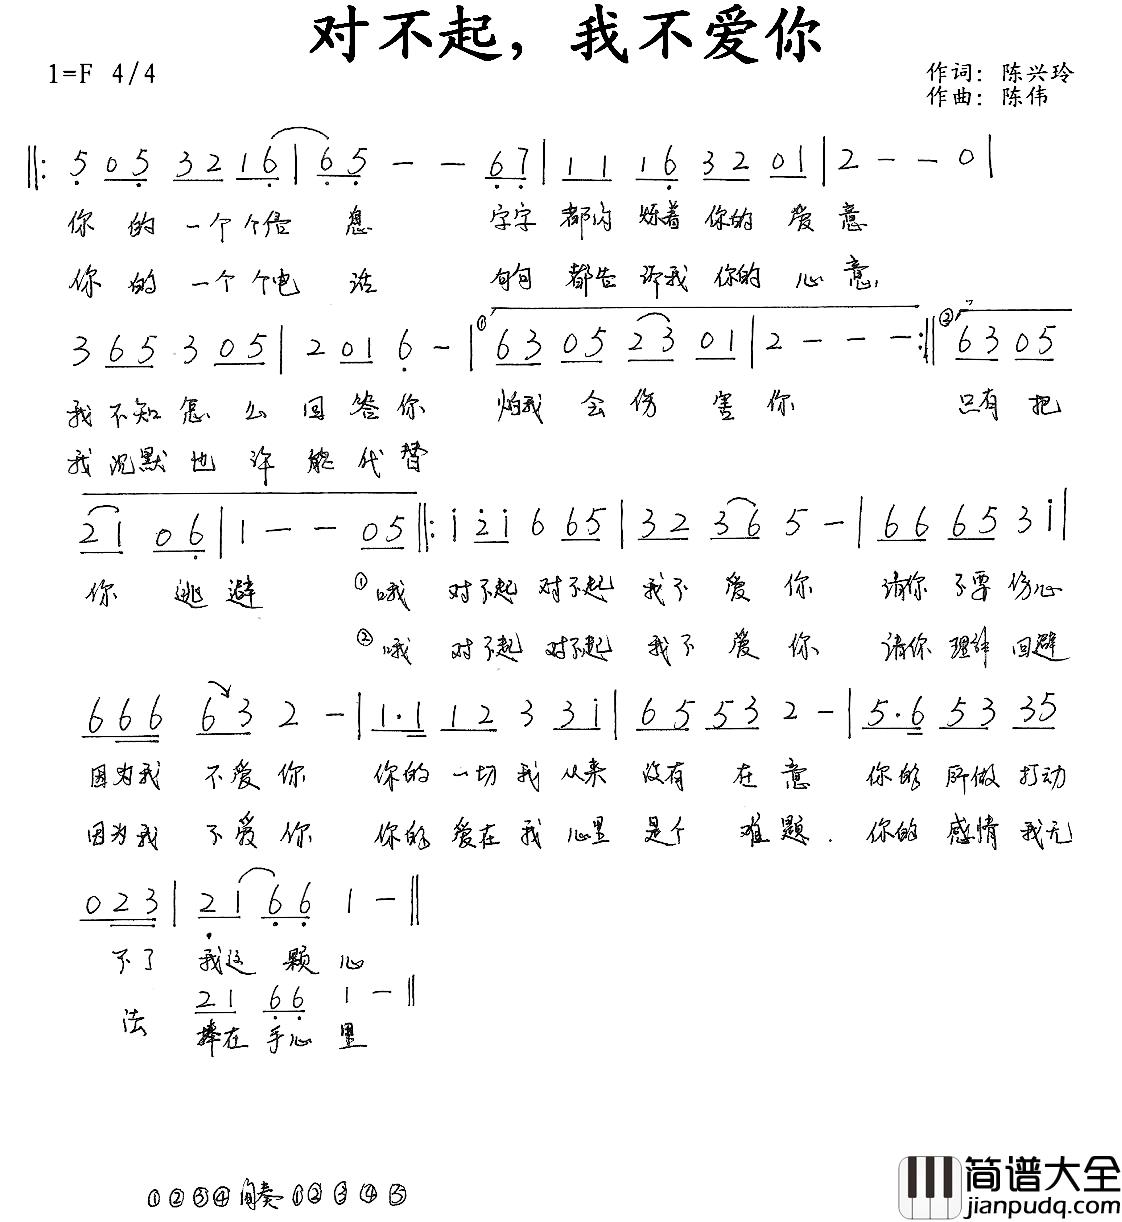 对不起，我不爱你
1=F 4/4
作词：陈兴玲
作曲：陈伟
‖: 5 05 32 16 | 65 - - 67 | 11 16 32 01 | 2 - - 0 |
你的一个个信息 字字都闪烁着你的爱意
你的一个个电话 句句都告诉我你的心意,
3 65 3 05 | 2 01 6 - | ① 63 05 23 01 | 2 - - - :‖ ② 63 05
我不知怎么回答你 怕我会伤害你 只有把
我沉默也许能代替
21 06 | 1 - - 05 ‖: i 2i 6 65 | 32 36 5 - | 66 65 3i |
你逃避 ①哦 对不起 对不起 我不爱你 请你不要伤心
②哦 对不起 对不起 我不爱你 请你理解回避
666 63 2 - | 1·1 12 3 3i | 65 53 2 - | 5·6 53 35
因为我不爱你 你的一切我从来没有在意 你的所做打动
因为我不爱你 你的爱在我心里是个难题. 你的感情我无
023 | 21 66 1 - ‖
不了 我这颗心
21 66 1 - ‖
法 捧在手心里
①②③④间奏①②③④⑤
简谱大全
jianpudq.com